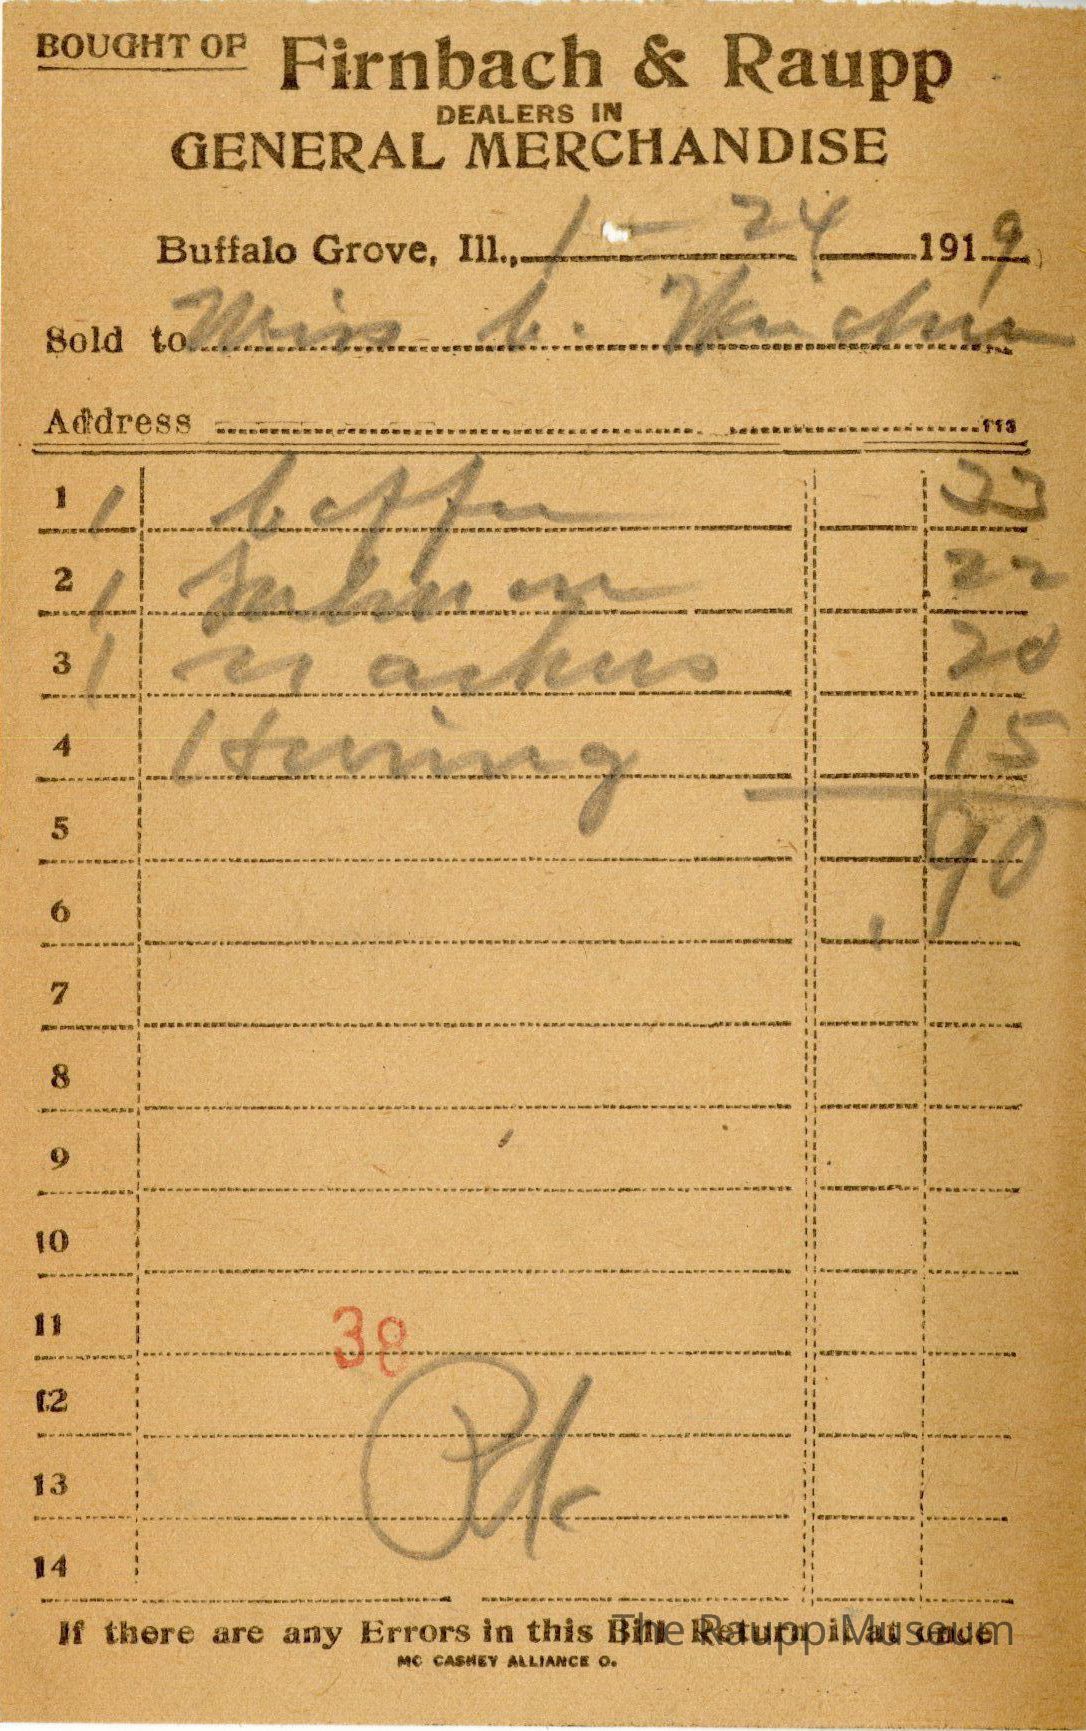 BOUGHT OF Firnbach & Raupp
DEALERS IN
GENERAL MERCHANDISE
Buffalo Grove, Ill., 1 - 24 1919
Sold to Miss
Address 113
1 1 Coffee 33
2 1 Salmon 22
3 1 20
4 Herring 15
5 .90
6
7
8
9
10
11 38
12
13
14
If there are any Errors in this Bill Return it at once
The Raupp Museum
MC CASKEY ALLIANCE O.